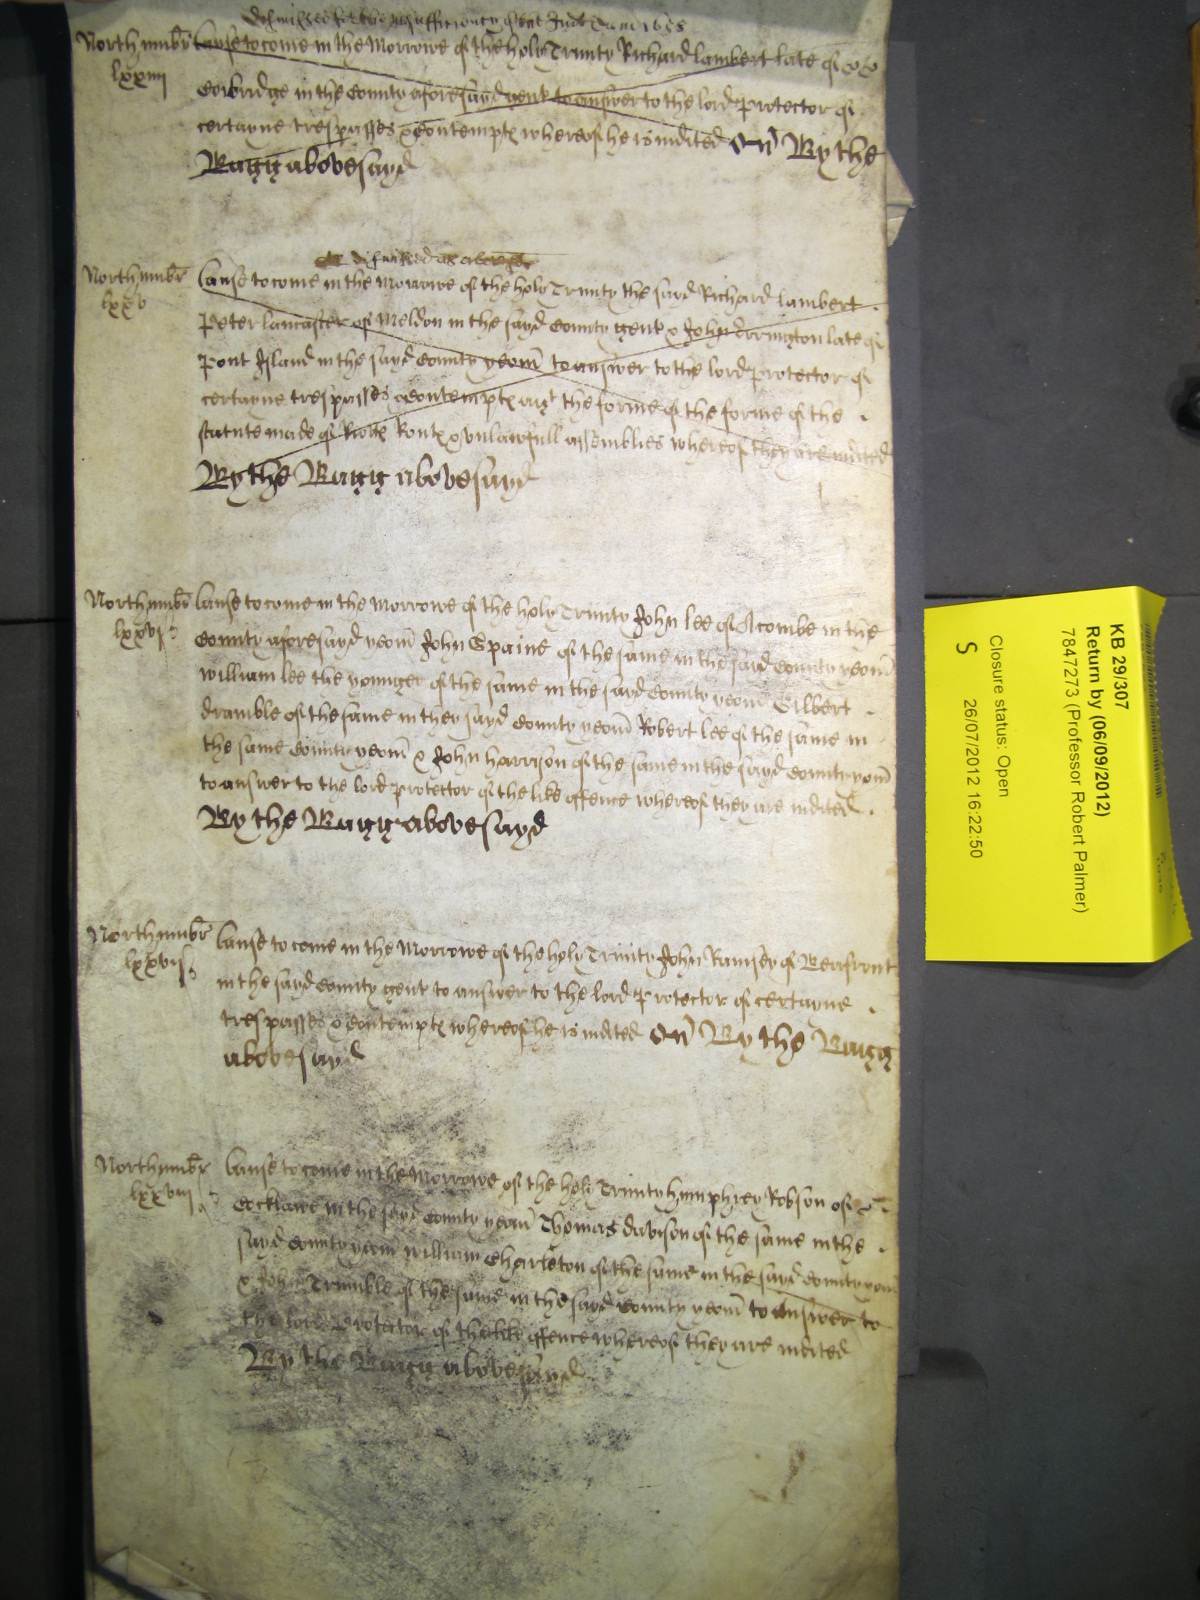 dismissed for the insufficiency of ent Indt
Northumbr Cause to come in the Morrowe of the holy Trinity Richard Lambert late of
lxxiiij
Corbridge in the County aforesayd gent to answer to the lord Protector of
certayne trespasses & contempts whereof he is indited By the
Bagg abovesayd
dismissed as above
Northumbr Cause to come in the Morrowe of the holy Trinity the sayd Richard Lambert
lxxv
Peter Lancaster of Meldon in the sayd County gent & John Errington late of
Pont Island in the sayd County yeom to answer to the lord protector of
certayne trespasses & Contempts agt the forme of the forme of the
statute made of Riots Routs & unlawfull assemblies whereof they are indited
By the Bagg abovesayd
Northumbr Cause to come in the Morrowe of the holy Trinity John Lee of Acombe in the
lxxvj
County aforesayd yeom John Spaine of the same in the sayd County yeom
William Lee the younger of the same in the sayd County yeom Gilbert
dramble of the same in they sayd County yeom Robert Lee of the same in
the same County yeom & John Harrison of the same in the sayd County yeom
to answer to the lord protector of the like offence whereof they are indited
By the Bagg abovesayd
Northumbr Cause to come in the Morrowe of the holy Trinity John Ramsey of Beafront
lxxvij
in the sayd County gent to answer to the lord Protector of certayne
trespasses & contempts whereof he is indited By the Bagg
abovesayd
Northumbr Cause to come in the Morrowe of the holy Trinity Humphrey Robson of
lxxviij
Cocklawe in the sayd County yeom Thomas davison of the same in the
sayd County yeom William Charleton of the same in the sayd County yeom
& John Trumble of the same in the sayd County yeom to answer to
the lord Protector of the like offence whereof they are indited
By the Bagg abovesayd
KB 29/307
Return by (06/09/2012)
7847273 (Professor Robert Palmer)
Closure status: Open
S 26/07/2012 16:22:50